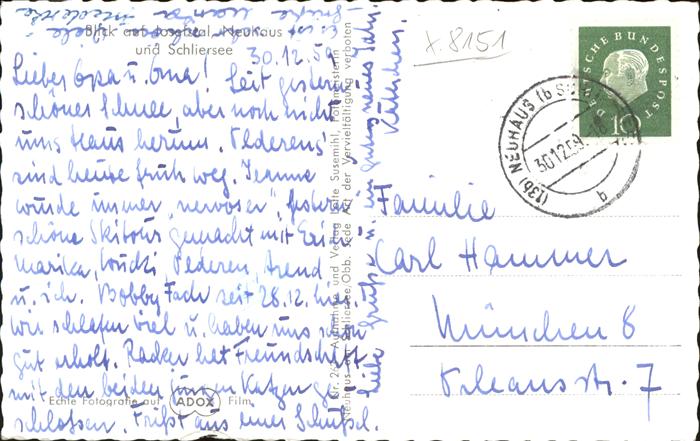 Blick auf Josefstal, Neuhaus
und Schliersee
30.12.59
Lieber Opa u. Oma! Seit gestern
schöner Schnee, aber noch nicht
ums Haus herum. Pederens
sind heute früh weg.
wurde immer "nervöser", gestern
schöne Skitour gemacht mit Eri
Marika, Pederen,
u. ich. Bobby Fach seit 28.12. hier,
wir schlafen viel u. haben uns schon
gut erholt. Racker hat Freundschaft
mit den beiden Katzen ge-
schlossen. Frißt aus einer Schüssel.
Liebe Grüße u. ein gutes neues Jahr
Echte Fotografie auf ADOX Film
Aufnahme und Verlag Lotte Susemihl, Fotomeisterin
Neuhaus bei Schliersee/Obb. Jede Art der Vervielfältigung verboten
X.8151
DEUTSCHE BUNDESPOST
10
(13b) NEUHAUS
30.12.59
b
Familie
Carl Hammer
München 8
Orleansstr. 7